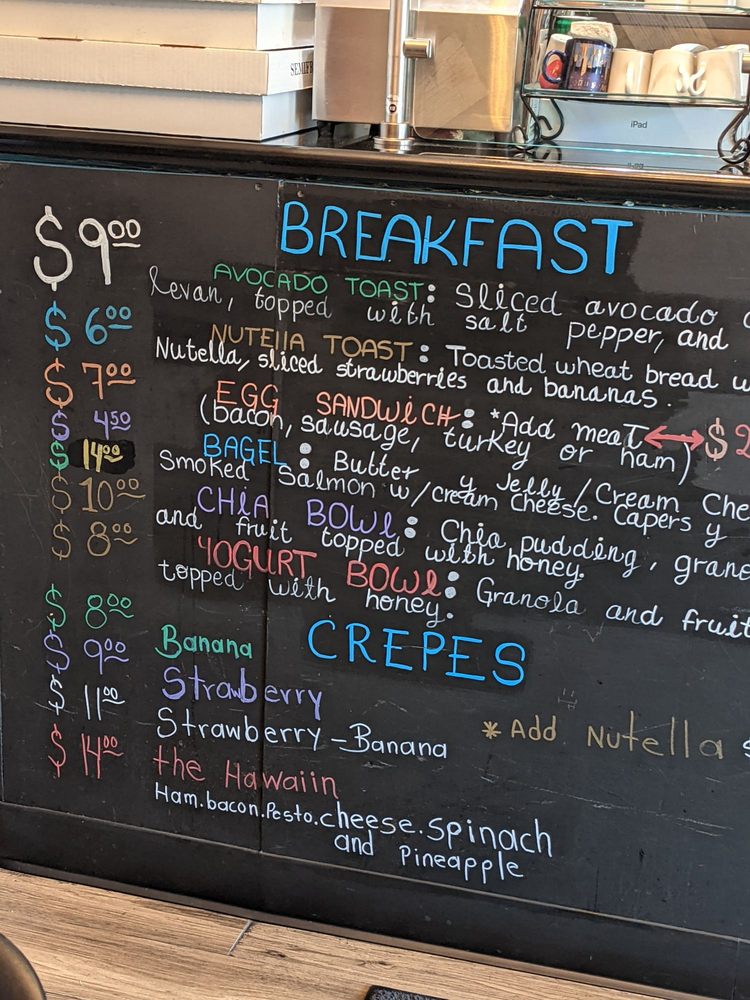 iPad
BREAKFAST
$9.00 AVOCADO TOAST: Sliced avocado
levan, topped with salt pepper, and
$6.00 NUTEllA TOAST: Toasted wheat bread
Nutella, sliced strawberries and bananas.
$7.00 EGG SANDWiCH: *Add meat $2
(bacon, sausage, turkey or ham)
$4.50 BAGEL: Butter y Jelly/Cream Che
$14.00 Smoked Salmon w/cream Cheese. Capers y
$10.00 CHiA BOWl: Chia pudding, grano
and fruit topped with honey.
$8.00 YOGURT BOWl: Granola and fruit
topped with honey.
CREPES
$8.00 Banana
$9.00 Strawberry
$11.00 Strawberry-Banana *Add Nutella $
$14.00 the Hawaiin
Ham.bacon.Pesto.cheese.spinach
and Pineapple